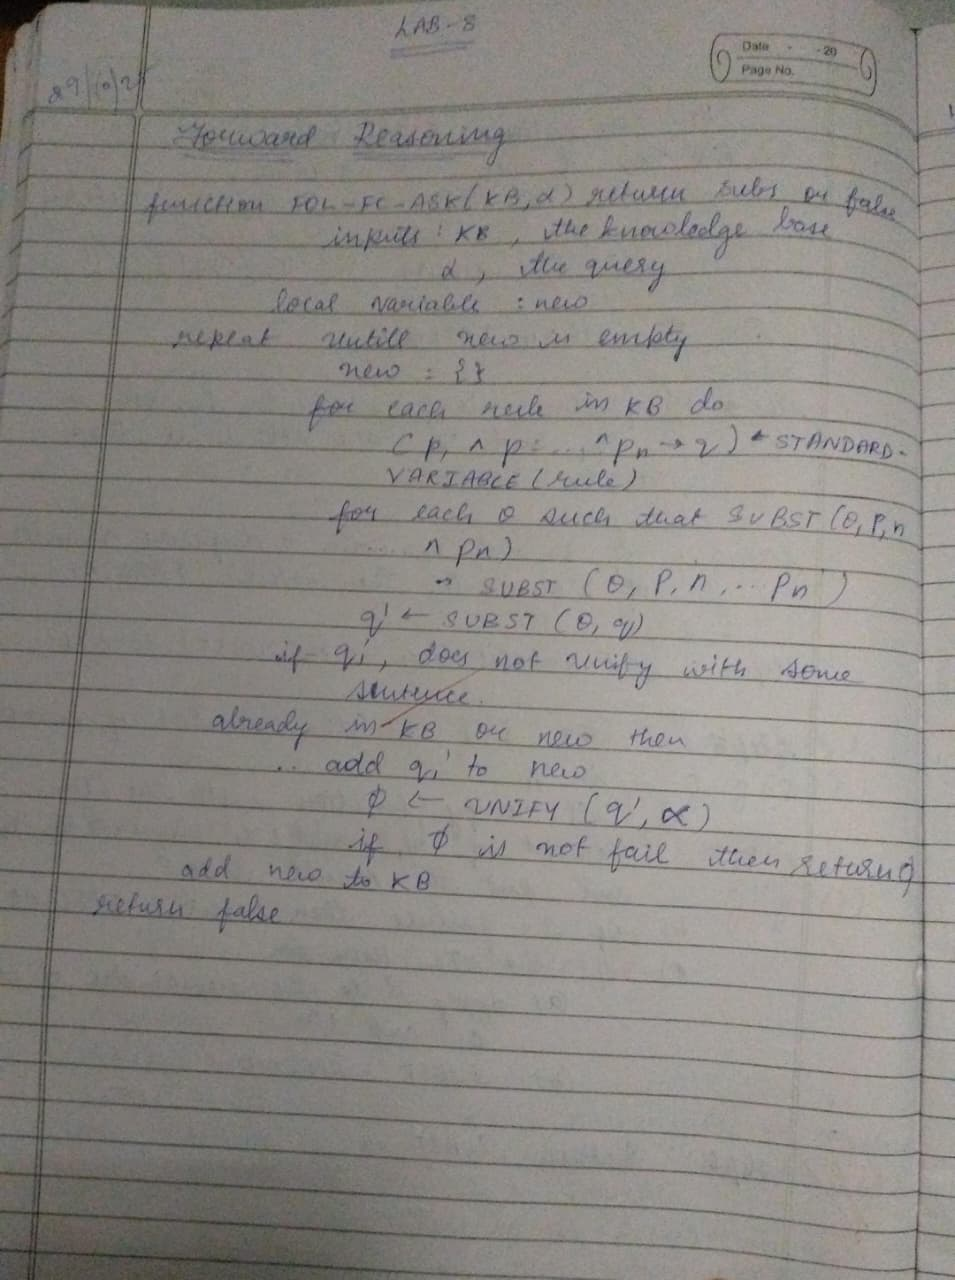 LAB-8
Date - - 20
Page No.
29/10/25
Forward Reasoning
function FOL-FC-ASK(KB, α) return subs or false
inputs : KB, the knowledge base
α, the query
local variable : new
repeat untill new is empty
new = {}
for each rule in KB do
(p, ∧ p: ... ∧ pn → q) ← STANDARD-
VARIABLE (rule)
for each θ such that SUBST (θ, P, n
... ∧ pn)
= SUBST (θ, P, n, ... Pn)
q' ← SUBST (θ, q)
if q', does not unify with some
sentence.
already in KB or new then
.. add q' to new
φ ← UNIFY (q', α)
if φ is not fail then return φ
add new to KB
return false